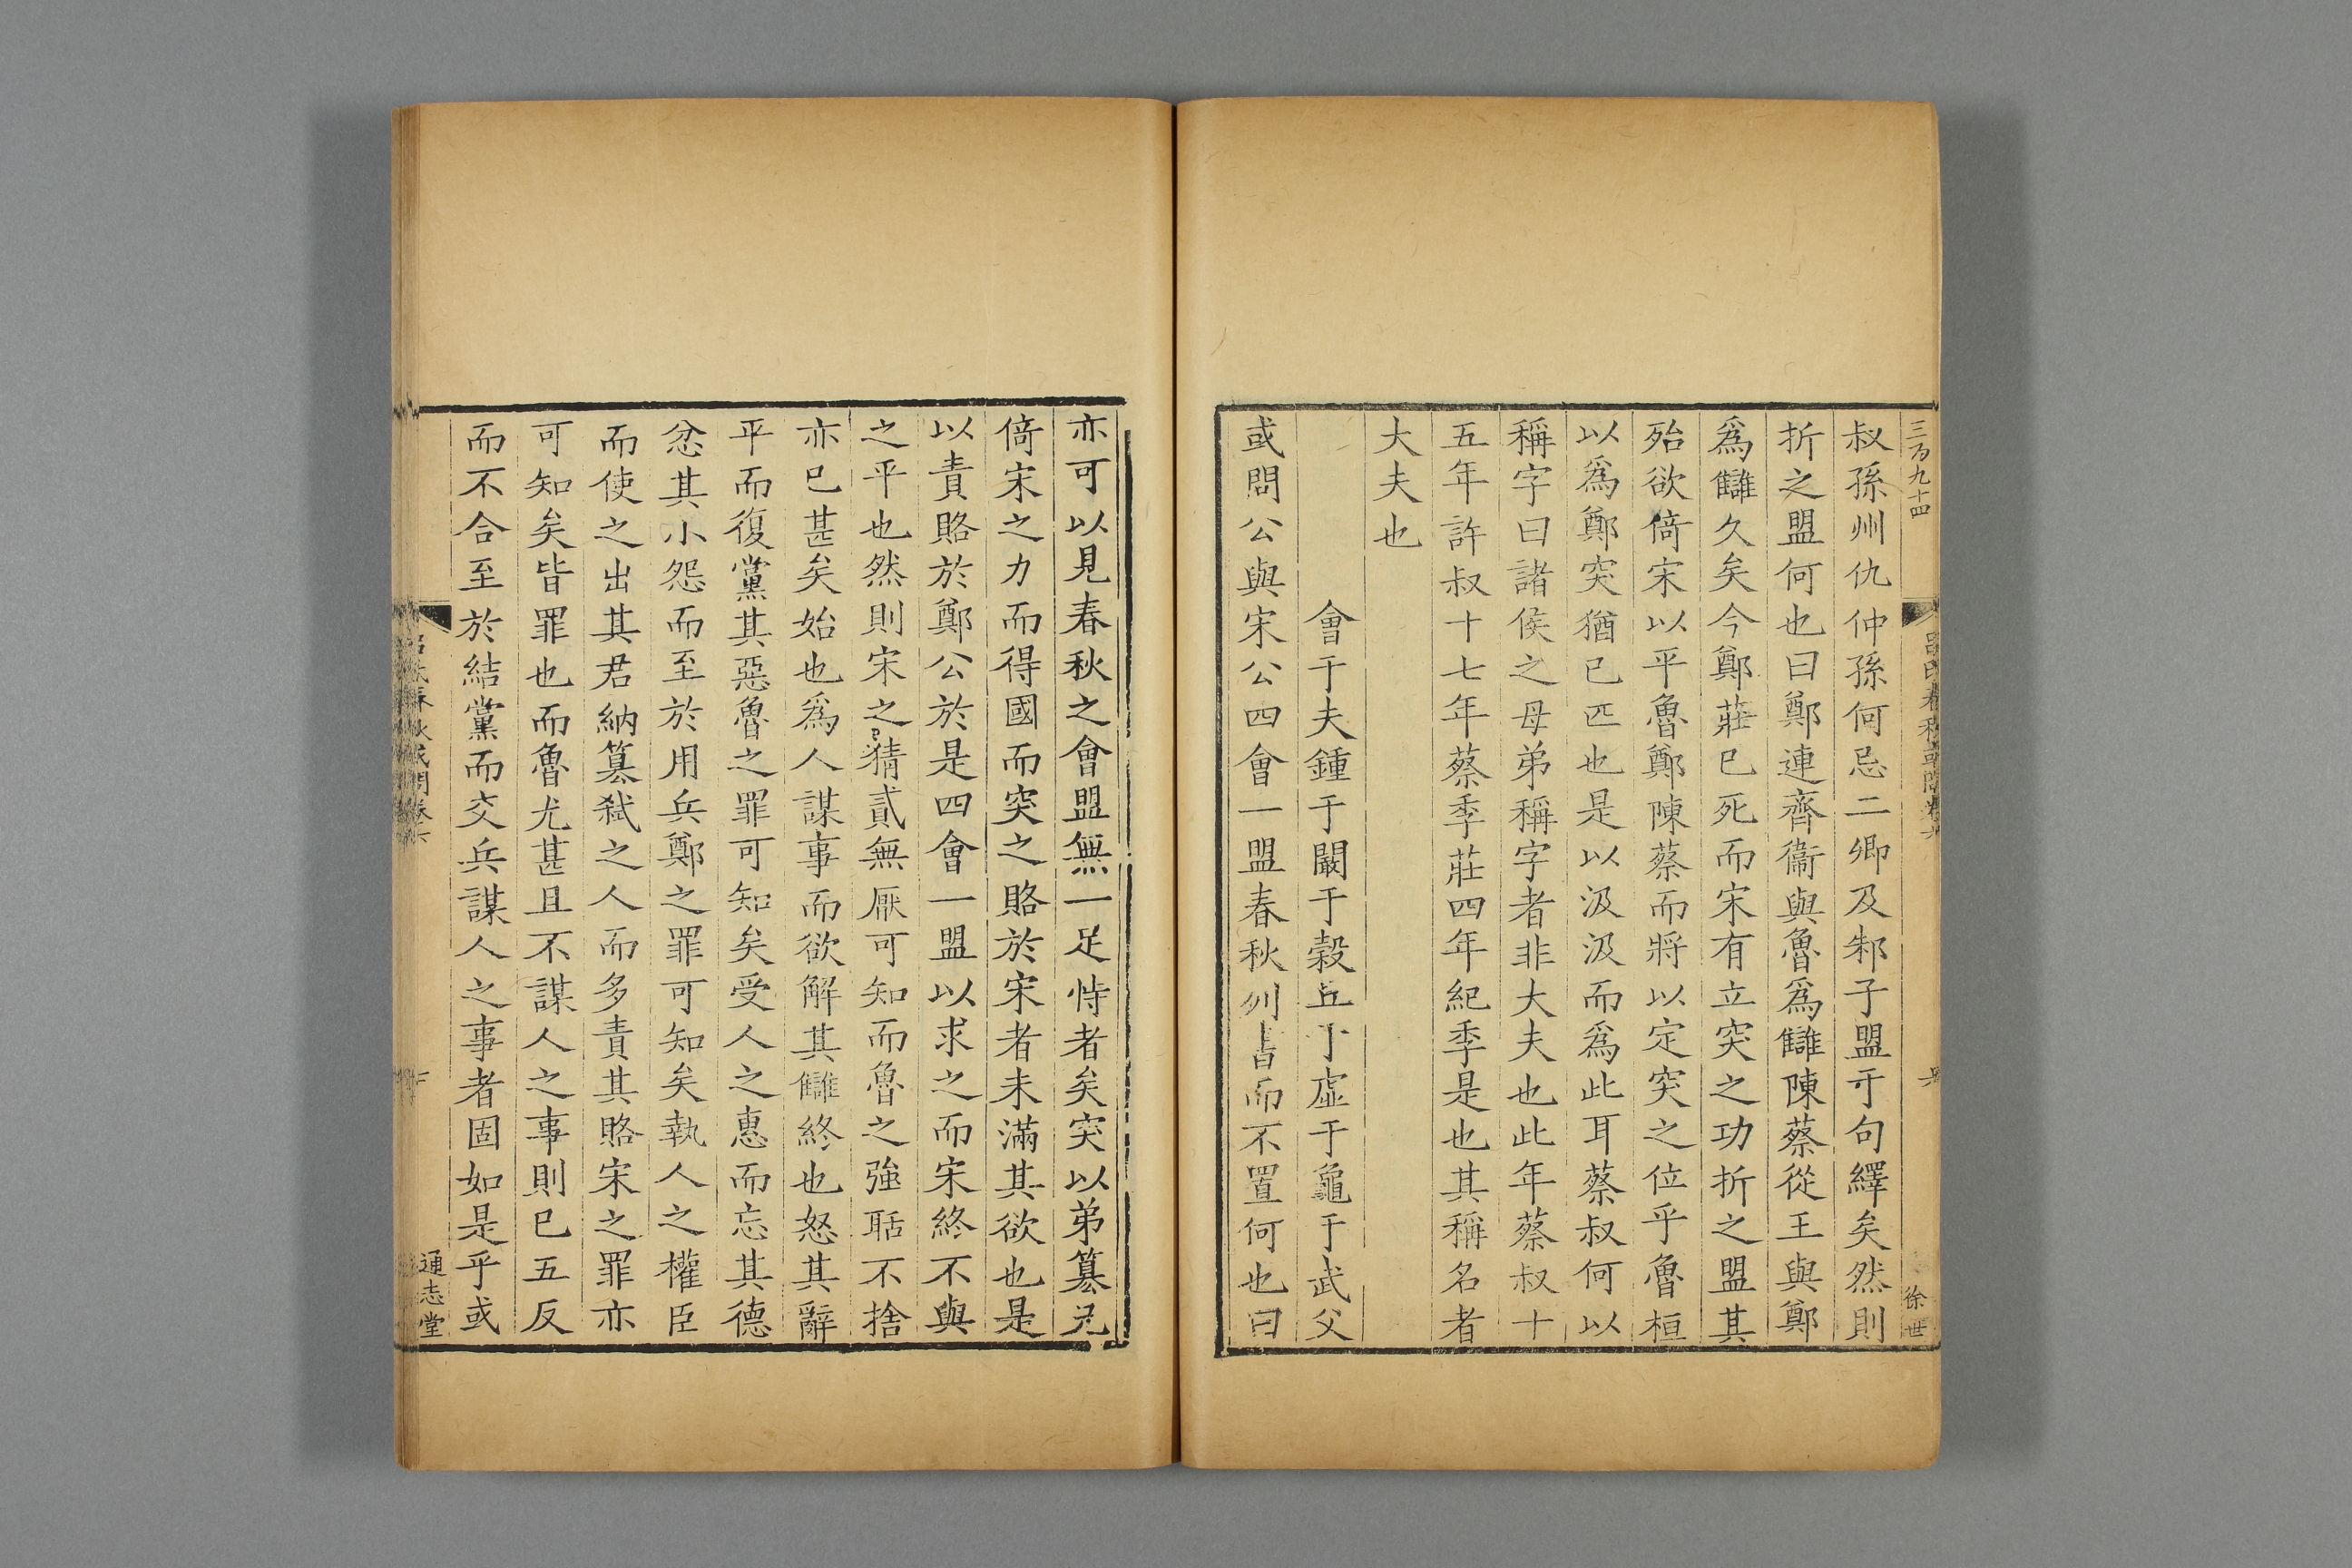 三百九十四
呂氏春秋或問卷六
徐世
叔孫州仇仲孫何忌二卿及邾子盟于句繹矣然則
折之盟何也曰鄭連齊衞與魯爲讎陳蔡從王與鄭
爲讎久矣今鄭莊已死而宋有立突之功折之盟其
殆欲倚宋以平魯鄭陳蔡而將以定突之位乎魯桓
以爲鄭突猶已匹也是以汲汲而爲此耳蔡叔何以
稱字曰諸侯之母弟稱字者非大夫也此年蔡叔十
五年許叔十七年蔡季莊四年紀季是也其稱名者
大夫也
會于夫鍾于闞于穀丘于虛于龜于武父
或問公與宋公四會一盟春秋列書而不置何也曰
亦可以見春秋之會盟無一足恃者矣突以弟簒兄
倚宋之力而得國而突之賂於宋者未滿其欲也是
以責賂於鄭公於是四會一盟以求之而宋終不與
之平也然則宋之猜貳無厭可知而魯之強聒不捨
亦已甚矣始也爲人謀事而欲解其讎終也怒其辭
平而復黨其惡魯之罪可知矣受人之惠而忘其德
忿其小怨而至於用兵鄭之罪可知矣執人之權臣
而使之出其君納簒弒之人而多責其賂宋之罪亦
可知矣皆罪也而魯尤甚且不謀人之事則已五反
而不合至於結黨而交兵謀人之事者固如是乎或
呂氏春秋或問卷六
通志堂